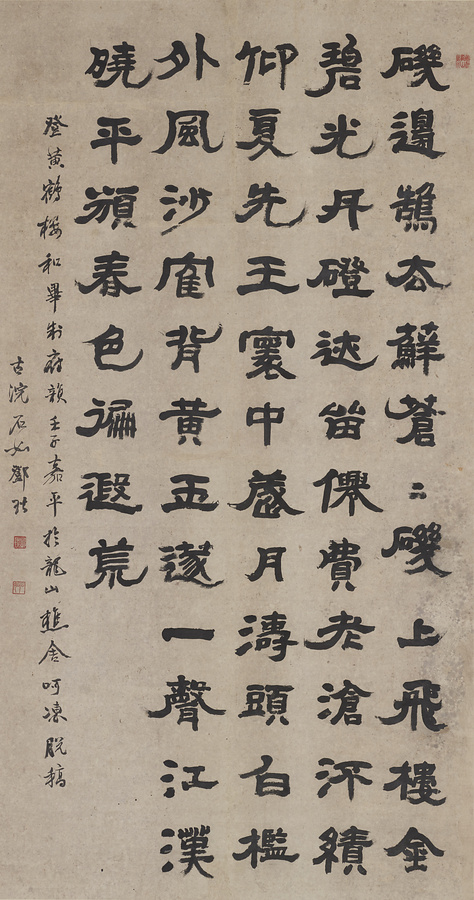 磯邊鵠去蘚蒼〻磯上飛樓金
碧光丹磴迹留僊費老滄泝績
仰夏先王寰中歲月濤頭白檻
外風沙隺背黄玉邃一聲江漢
曉平蘋春色徧遐荒
登黄鶴樓和畢制府韻壬子嘉平於龍山樵舍呵凍脫稿
古浣石如鄧琰